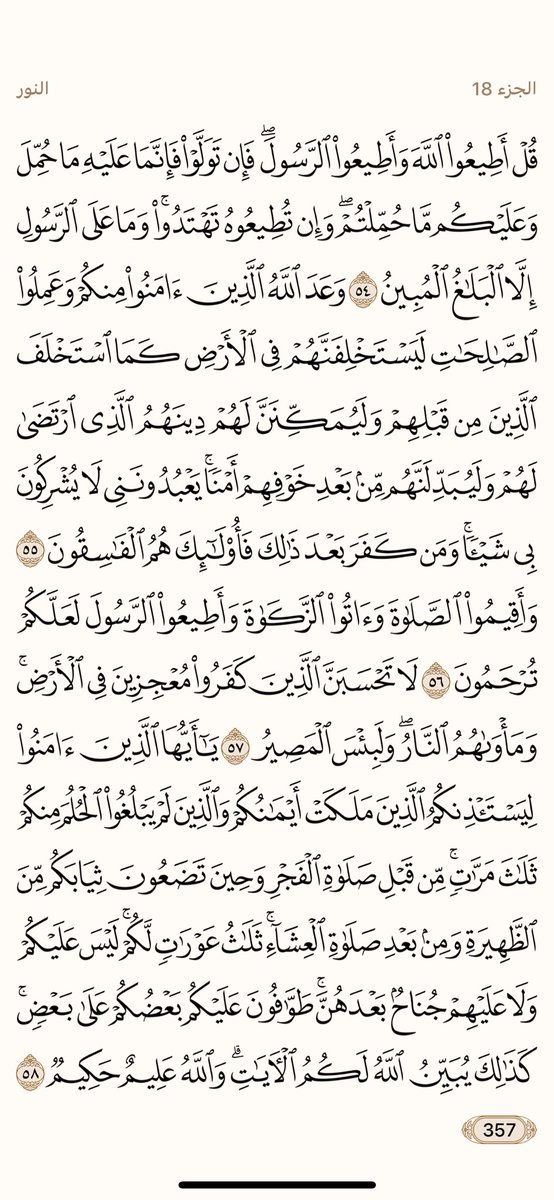 الجزء 18
النور
قُلۡ أَطِيعُواْ ٱللَّهَ وَأَطِيعُواْ ٱلرَّسُولَۖ فَإِن تَوَلَّوۡاْ فَإِنَّمَا عَلَيۡهِ مَا حُمِّلَ
وَعَلَيۡكُم مَّا حُمِّلۡتُمۡۖ وَإِن تُطِيعُوهُ تَهۡتَدُواْۚ وَمَا عَلَى ٱلرَّسُولِ
إِلَّا ٱلۡبَلَٰغُ ٱلۡمُبِينُ ٥٤ وَعَدَ ٱللَّهُ ٱلَّذِينَ ءَامَنُواْ مِنكُمۡ وَعَمِلُواْ
ٱلصَّٰلِحَٰتِ لَيَسۡتَخۡلِفَنَّهُمۡ فِي ٱلۡأَرۡضِ كَمَا ٱسۡتَخۡلَفَ
ٱلَّذِينَ مِن قَبۡلِهِمۡ وَلَيُمَكِّنَنَّ لَهُمۡ دِينَهُمُ ٱلَّذِي ٱرۡتَضَىٰ
لَهُمۡ وَلَيُبَدِّلَنَّهُم مِّنۢ بَعۡدِ خَوۡفِهِمۡ أَمۡنٗاۚ يَعۡبُدُونَنِي لَا يُشۡرِكُونَ
بِي شَيۡـٔٗاۚ وَمَن كَفَرَ بَعۡدَ ذَٰلِكَ فَأُوْلَٰٓئِكَ هُمُ ٱلۡفَٰسِقُونَ ٥٥
وَأَقِيمُواْ ٱلصَّلَوٰةَ وَءَاتُواْ ٱلزَّكَوٰةَ وَأَطِيعُواْ ٱلرَّسُولَ لَعَلَّكُمۡ
تُرۡحَمُونَ ٥٦ لَا تَحۡسَبَنَّ ٱلَّذِينَ كَفَرُواْ مُعۡجِزِينَ فِي ٱلۡأَرۡضِۚ
وَمَأۡوَىٰهُمُ ٱلنَّارُۖ وَلَبِئۡسَ ٱلۡمَصِيرُ ٥٧ يَٰٓأَيُّهَا ٱلَّذِينَ ءَامَنُواْ
لِيَسۡتَـٔۡذِنكُمُ ٱلَّذِينَ مَلَكَتۡ أَيۡمَٰنُكُمۡ وَٱلَّذِينَ لَمۡ يَبۡلُغُواْ ٱلۡحُلُمَ مِنكُمۡ
ثَلَٰثَ مَرَّٰتٖۚ مِّن قَبۡلِ صَلَوٰةِ ٱلۡفَجۡرِ وَحِينَ تَضَعُونَ ثِيَابَكُم مِّنَ
ٱلظَّهِيرَةِ وَمِنۢ بَعۡدِ صَلَوٰةِ ٱلۡعِشَآءِۚ ثَلَٰثُ عَوۡرَٰتٖ لَّكُمۡۚ لَيۡسَ عَلَيۡكُمۡ
وَلَا عَلَيۡهِمۡ جُنَاحُۢ بَعۡدَهُنَّۚ طَوَّٰفُونَ عَلَيۡكُم بَعۡضُكُمۡ عَلَىٰ بَعۡضٖۚ
كَذَٰلِكَ يُبَيِّنُ ٱللَّهُ لَكُمُ ٱلۡأٓيَٰتِۗ وَٱللَّهُ عَلِيمٌ حَكِيمٞ ٥٨
357